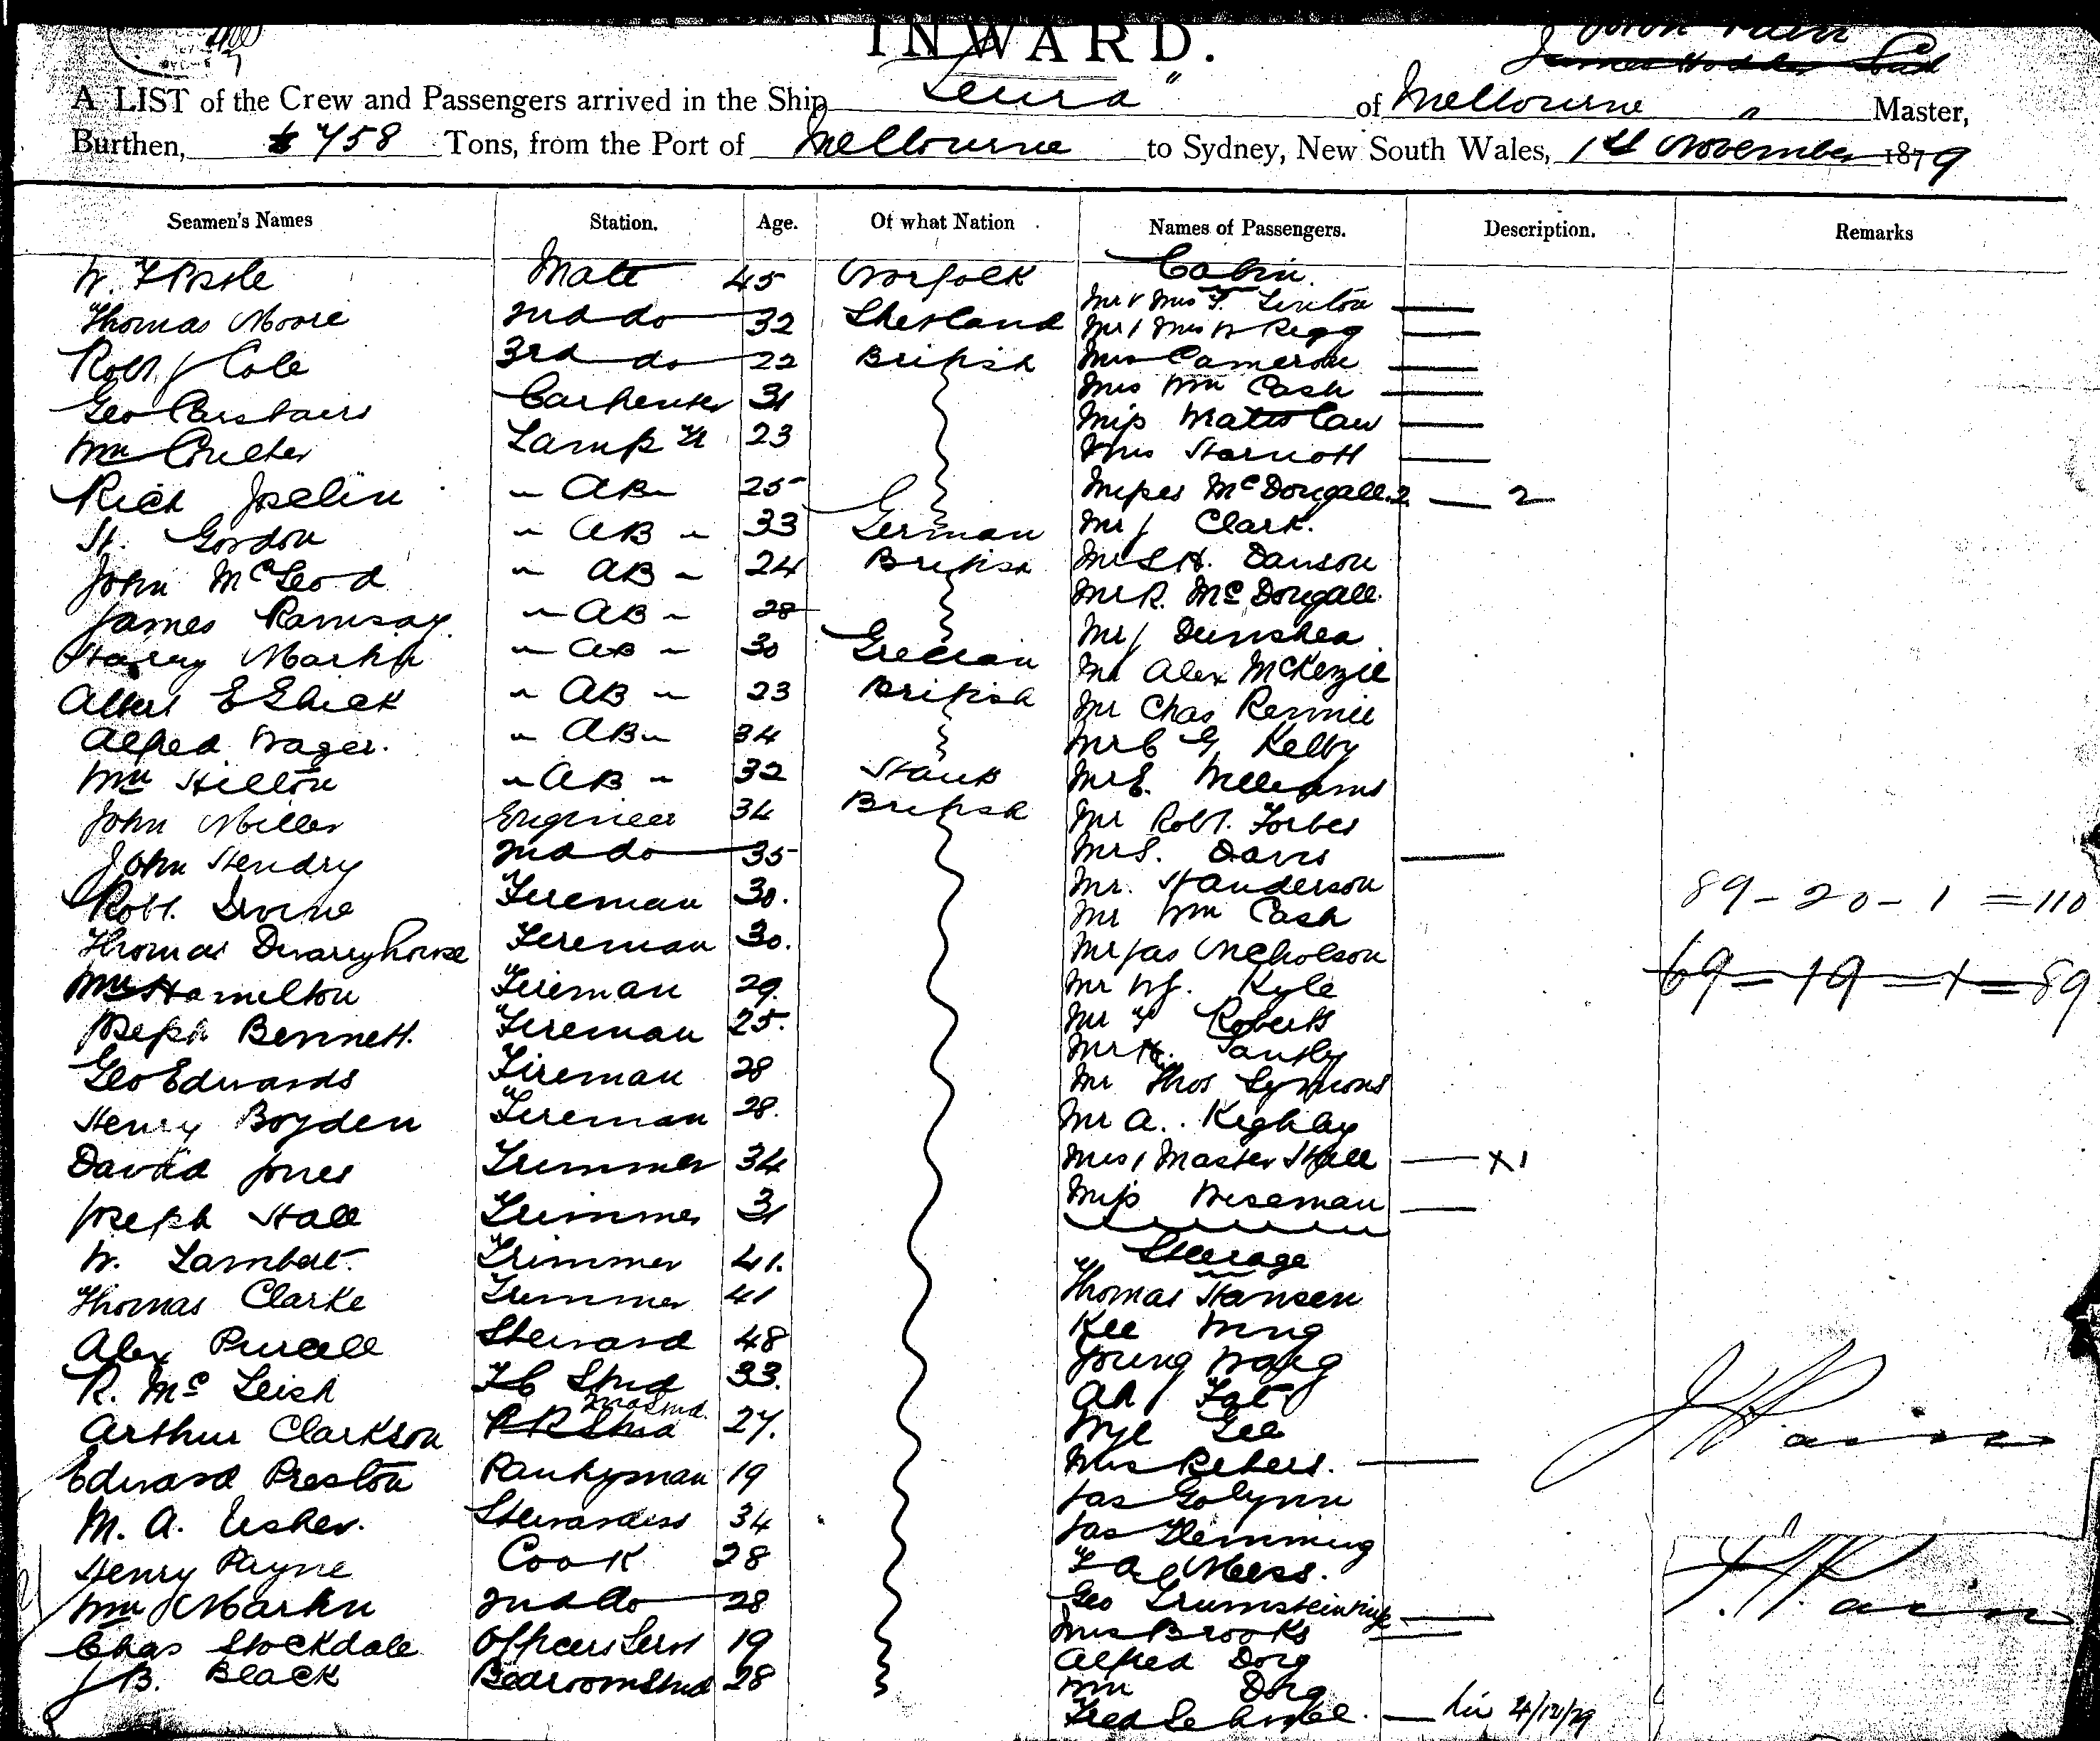 INWARD.
A LIST of the Crew and Passengers arrived in the Ship "Leura" of Melbourne " Master,
Burthen, 458 Tons, from the Port of Melbourne to Sydney, New South Wales, 1st November 1879
Seamen's Names Station. Age. Of what Nation Names of Passengers. Description. Remarks
Mate 45 Norfolk Cabin.
Mr & Mrs F. Linton
Thomas Moore 2nd do 32 Shetland Mr & Mrs W Pegg
Robt J Cole 3rd do 22 British Mrs Cameron
Mrs Wm Cash
Geo Carstairs Carpenter 31 Miss Law
Wm Coulter Lamp Tr 23 Mrs
Rich Joslin " AB " 25 Misses McDougall 2 2
St. Gordon " AB " 33 German Mr J Clark.
John McLeod " AB " 24 British Mr S H. Dawson
James Ramsay " AB " 28 Mr R. McDougall
Harry Martin " AB " 30 Grecian Mr J Dunshea
Mr Alex McKenzie
Albert E Shick " AB " 23 British Mr Chas Rennie
Alfred Wager. " AB " 34 Mr C G. Kelby
Wm Hilton " AB " 32 Mr E. Williams
John Miller Engineer 34 British Mr Robt. Forbes
John Hendry 2nd do 35 Mrs. Davis
Robt. Irvine Fireman 30. Mr. Handerson
Mr Wm Cash
89 - 20 - 1 = 110
Thomas Dwarryhouse Fireman 30. Mr Jas Nicholson
69 - 19 - 1 = 89
Wm Hamilton Fireman 29. Mr W J. Kyle
Joseph Bennett. Fireman 25. Mr F Roberts
Mr H.
Geo Edwards Fireman 28 Mr Thos Symons
Henry Boyden Fireman 28. Mr A. Keghley
David Jones Trimmer 34 Mrs & Master Hall x1
Joseph Hall Trimmer 31 Miss Wiseman
W. Lambert. Trimmer 41. Steerage
Thomas Clarke Trimmer 41 Thomas Hansen
Alex Purcell Steward 48 Kee Ming
Young Wang
R. McLeish F C Stwd 33. Ah Fat
Arthur Clarkson 2nd Stwd. 27. Wye Lee
Edward Preston Pantryman 19 Mrs Peters.
Jas Golynn
M. A. Usher. Stewardess 34 Jas Flemming
Henry Payne Cook 28
Wm J Martin 2nd do 28 Geo
Chas Stockdale Officers Servt 19 Mrs Brooks
Alfred Dorg
J B. Black Bedroom Stwd 28 Wm Dorg
Fred 4/12/79